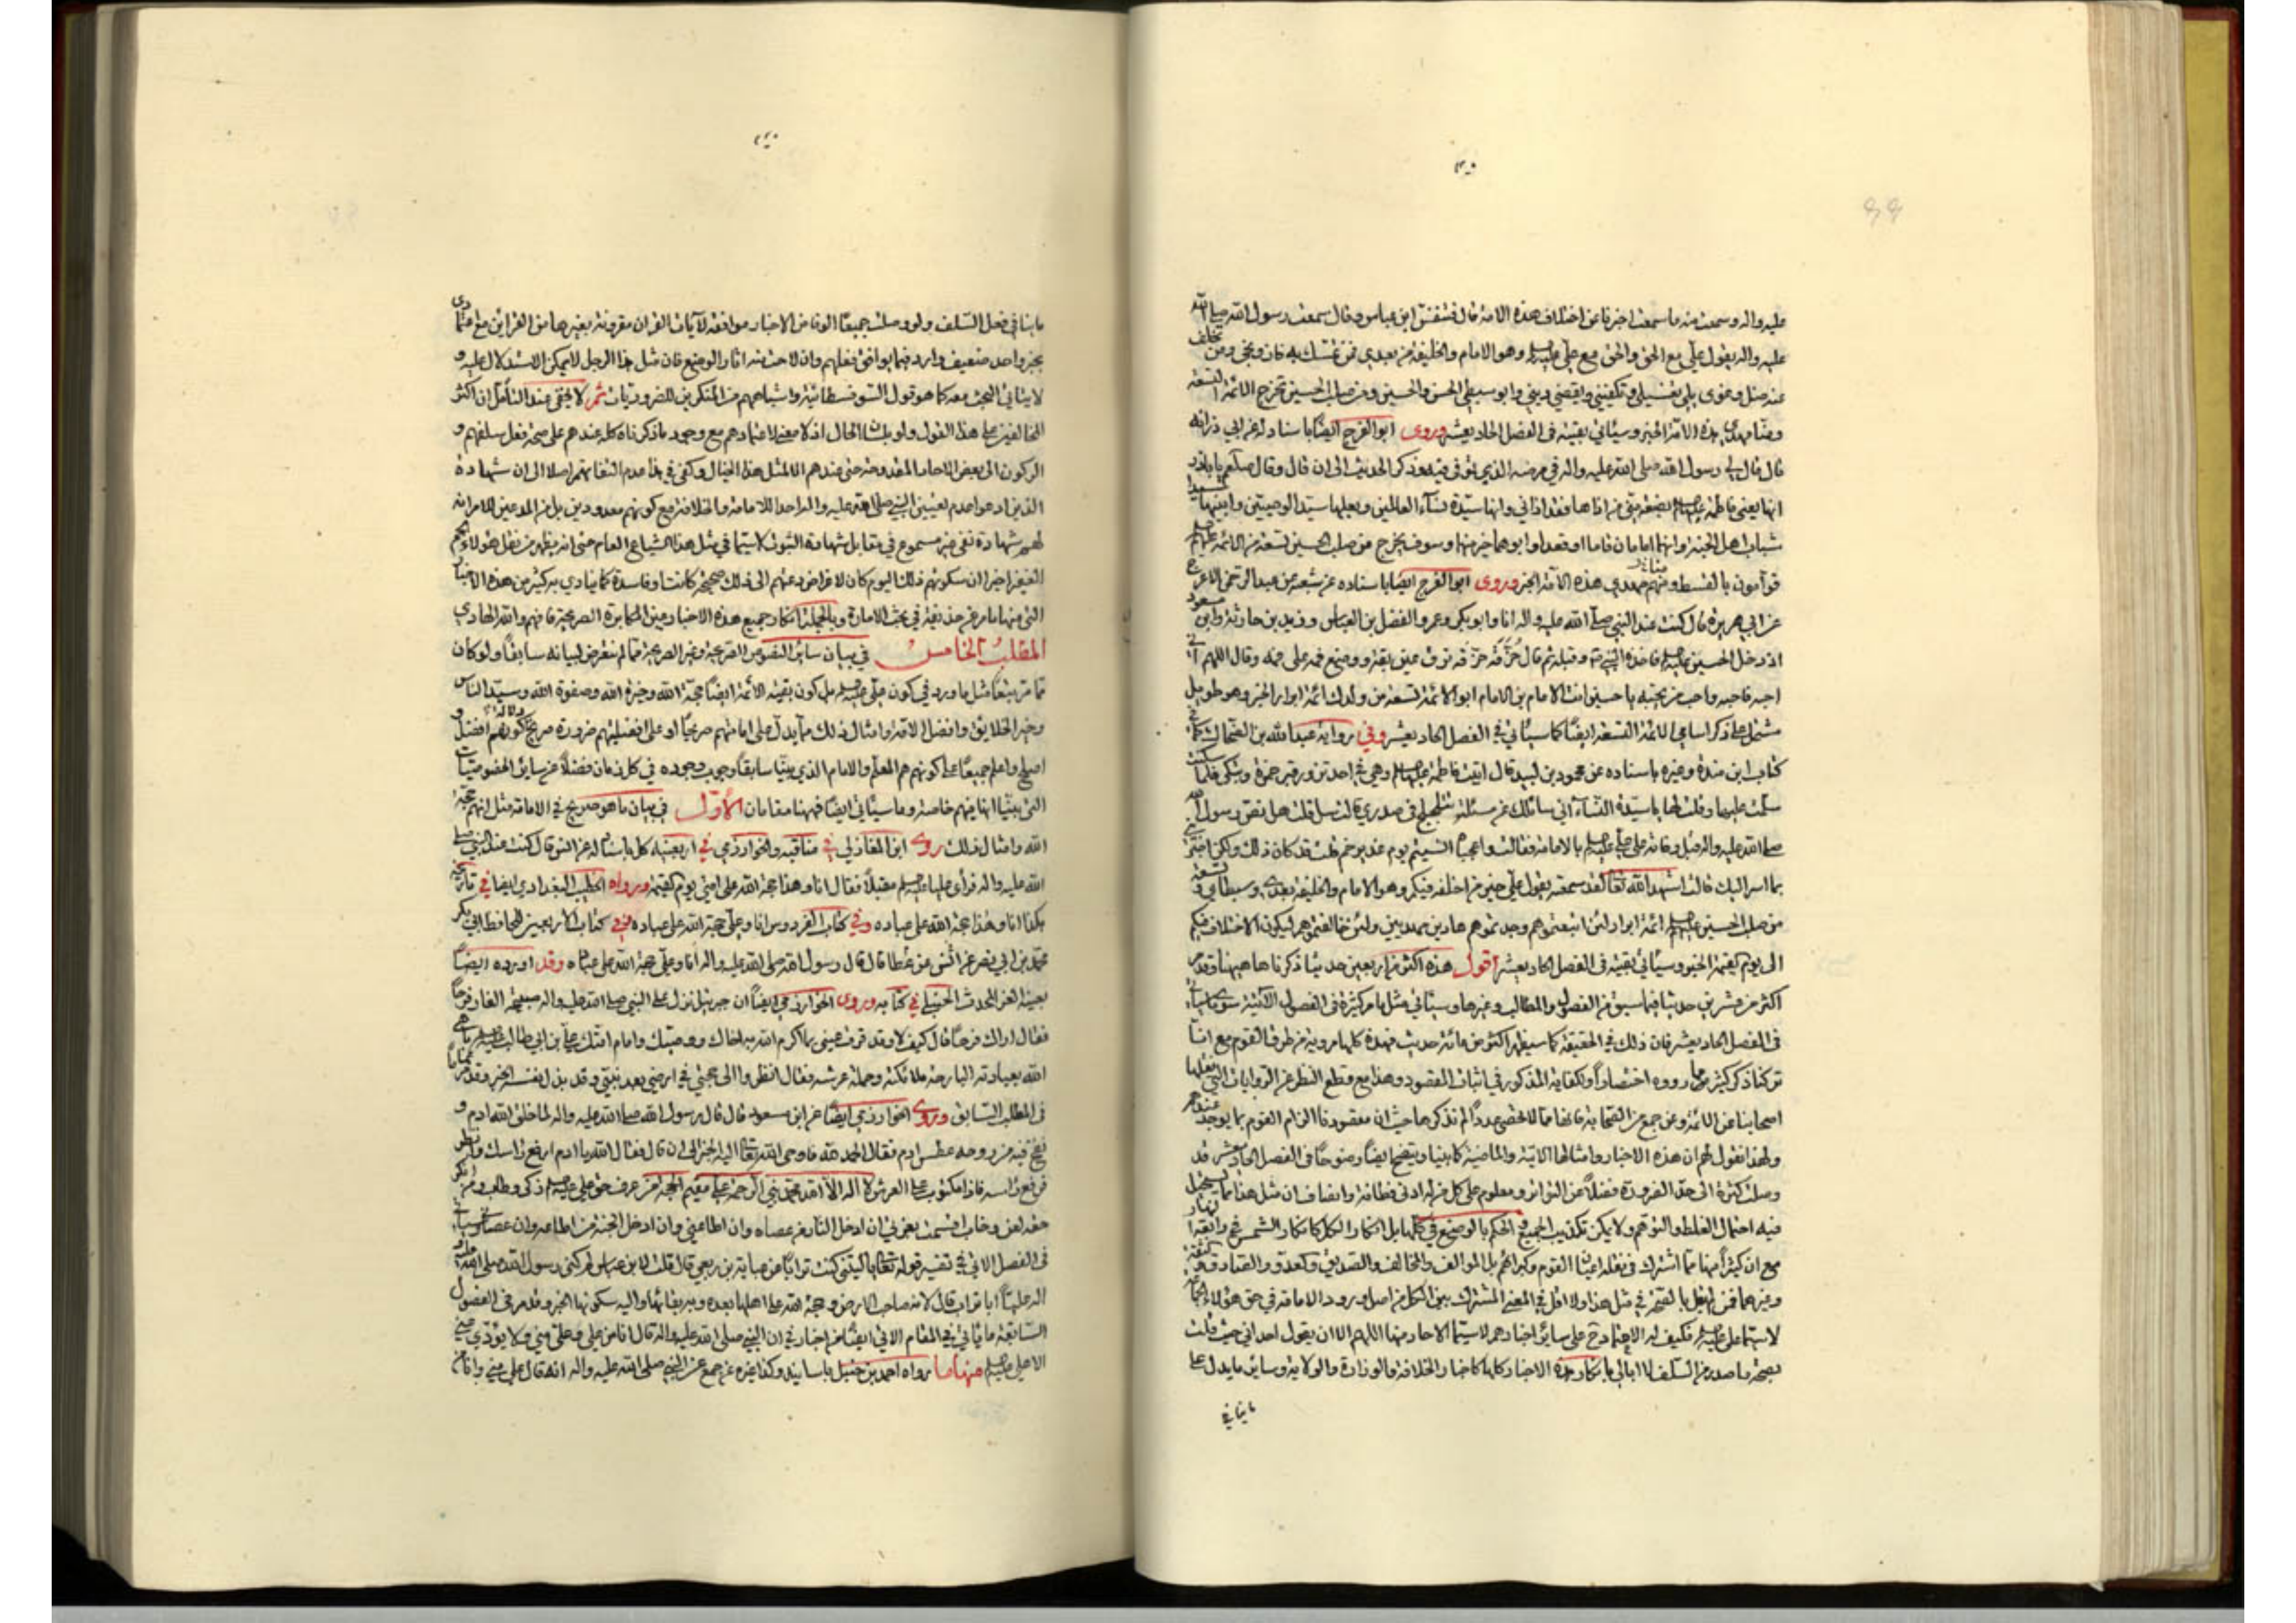 عليه واله وسمعت منه ما سمعت اخبرنا عن اختلاف هذه الامة قال فتنفس ابن عباس وقال سمعت رسول الله صلى الله
عليه واله يقول علي مع الحق والحق مع علي وهو الامام والخليفة من بعدي فمن تمسك به فاز ونجى ومن تخلف
عنه ضل وغوى يلي تغسيلي وتكفيني ويقضي ديني وابو سبطي الحسن والحسين ومن صلب الحسين تخرج الائمة التسعة
ومنا مهدي هذه الامة الخبر وسيأتي بقيته في الفصل الحاديعشر وروى ابو الفرج ايضا باسناد له عن ابي ذر انه
قال قال لي رسول الله صلى الله عليه واله في مرضه الذي توفى فيه وذكر الحديث الى ان قال وقال صلعم يا باذر
انها يعني فاطمة بضعة مني فمن اذاها فقد اذاني وانها سيدة نساء العالمين وبعلها سيد الوصيين وابنيها سيدا
شباب اهل الجنة وانهما امامان قاما او قعدا وابوهما خير منهما وسوف يخرج من صلب الحسين تسعة من الائمة
قوامون بالقسط ومنهم مهدي هذه الامة الخبر وروى ابو الفرج ايضا باسناده عن شعبة عن عبد الرحمن الاعرج
عن ابي هريرة قال كنت عند النبي صلى الله عليه واله انا وابو بكر وعمر والفضل بن العباس وزيد بن حارثة وابن مسعود
اذ دخل الحسين فاخذه النبي وقبله ثم قال حزقة حزقة ترق عين بقة ووضع فمه على فمه وقال اللهم اني
احبه فاحبه واحب من يحبه يا حسين انت الامام بن الامام ابو الائمة تسعة من ولدك ائمة ابرار الخبر وهو طويل
مشتمل على ذكر اسامي الائمة التسعة ايضا كما سيأتي في الفصل الحاديعشر وفي رواية عبد الله بن الضحاك
كتاب ابن مندة وغيره باسناده عن محمود بن لبيد قال اتيت فاطمة وهي في احد تزور قبر حمزة وتبكي فلما سكنت
سلمت عليها وقلت لها يا سيدة النساء اني سائلك عن مسئلة تتلجلج في صدري قالت سل قلت هل نص رسول الله
صلى الله عليه واله قبل وفاته على علي بالامامة فقالت واعجبا انسيتم يوم غدير خم قلت قد كان ذلك ولكن اخبريني
بما اسر اليك قالت اشهد الله تعالى لقد سمعته يقول علي خير من اخلفه فيكم وهو الامام والخليفة بعدي وسبطاي وتسعة
من صلب الحسين ائمة ابرار لئن اتبعتموهم وجدتموهم هادين مهديين ولئن خالفتموهم ليكون الاختلاف فيكم
الى يوم القيمة الخبر وسيأتي بقيته في الفصل الحاديعشر اقول هذه اكثر من اربعين حديثا ذكرناها ههنا وقد مر
اكثر من عشرين حديثا فيما سبق من الفصول والمطالب وغيرها وسيأتي مثل ما مر كثيرة في الفصول الآتية سوى ما يأتي
في الفصل الحاديعشر فان ذلك في الحقيقة كما سيظهر اكثر من مائة حديث فهذه كلها مروية من طرف القوم مع انا
تركنا ذكر كثير مما رووه اختصارا ولكفاية المذكور في اثبات المقصود وهذا مع قطع النظر عن الروايات التي نقلها
اصحابنا عن الائمة وعن جمع من الصحابة فانها مما لا تحصى عددا لم نذكرها حيث ان مقصودنا الزام القوم بما يوجد عندهم
ولهذا نقول لهم ان هذه الاخبار وامثالها الآتية والماضية كما بينا ويتضح ايضا وضوحا في الفصل الحاديعشر قد
وصلت كثرة الى حد الضرورة فضلا عن التواتر ومعلوم على كل من له ادنى فطانة وانصاف ان مثل هذا مما يستحيل
فيه احتمال الغلط والتوهم ولا يمكن تكذيب الجميع والحكم بالوضع في كلها بل انكار الكل كانكار الشمس في رابعة النهار
مع ان كثيرا منها مما اشترك في نقله اعيان القوم وكبراؤهم بل الموالف والمخالف والصديق وكعدو والصادق
وغيرهما فمن لم يقل بالصحة في مثل هذا ولا اقل في المعنى المشترك بين الكل من اصل ورود الامامة في حق هؤلاء
لاسيما علي فكيف له الاعتماد على سائر اخبارهم لاسيما الاحاد منها اللهم الا ان يقول احد اني حيث قلت
بصحة ما صدر من السلف لا ابالي بانكار هذه الاخبار كلها كاخبار الخلافة والوزارة والولاية وسائر ما يدل على
ما ينافي
ما ينافي فعل السلف ولو وصلت جميعا الوفا من الاخبار موافقة لآيات القران مقرونة بغيرها من القراين مع اعتمادي
بخبر واحد ضعيف وارد فيما يوافق فعلهم وان لاحت منه اثار الوضع فان مثل هذا الرجل لا يمكن الاستدلال عليه و
لا يتاتى البحث معه كما هو قول السوفسطائية واشباههم من المنكرين للضروريات ثم لا يخفى عند التأمل ان اكثر
المخالفين على هذا القول ولو بلسان الحال اذ لا معنى لاعتمادهم مع وجود ما ذكرناه كله عندهم على صحة فعل سلفهم و
الركون الى بعض الاحاد المقدوحة حتى عندهم الا لمثل هذا الخيال وكفى في هذا عدم التفاتهم اصلا الى ان شهادة
الذين ادعوا عدم تعيين النبي صلى الله عليه واله احدا للامامة والخلافة مع كونهم معدودين بل من المدعين للامر انه
لهم شهادة نفي غير مسموع في مقابل شهادة الثبوت لاسيما في مثل هذا الشياع العام حتى انه يظهر من نقل هؤلاء الجم
الغفير اخيرا ان سكوتهم ذلك اليوم كان لاغراض دعتهم الى ذلك صحيحة كانت او فاسدة كما ينادي به كثير من هذه الاخبار
التي منها ما مر عن حذيفة في بحث الامارة وبالجملة انكار جميع هذه الاخبار عين المكابرة الصريحة فافهم والله الهادي
المطلب الخامس في بيان سائر النصوص الصريحة وغير الصريحة مما لم نتعرض لبيانه سابقا ولو كان
مما مر تبعا مثل ما ورد في كون علي بل كون بقية الائمة ايضا حجة الله وخيرة الله وصفوة الله وسيد الناس
وخير الخلايق وافضل الامة وامثال ذلك مما يدل على امامتهم صريحا او على افضليتهم ضرورة صريح دلالة كونهم افضل و
اصلح واعلم جميعا على كونهم هم المعلم والامام الذي بينا سابقا وجوب وجوده في كل زمان فضلا عن سائر الخصوصيات
التي بينا انها فيهم خاصة وما سيأتي ايضا فههنا مقامان الاول في بيان ما هو صريح في الامامة مثل انهم حجة
الله وامثال ذلك روى ابن المغازلي في مناقبه والخوارزمي في اربعينه كل باسناد له عن انس قال كنت عند النبي صلى
الله عليه واله فرأى عليا مقبلا فقال انا وهذا حجة الله على امتي يوم القيمة ورواه الخطيب البغدادي ايضا في تاريخه
هكذا انا وهذا حجة الله على عباده وفي كتاب الفردوس انا وعلي حجة الله على عباده وفي كتاب الاربعين للحافظ ابي بكر
محمد بن ابي نصر عن انس عن عطا قال قال رسول الله صلى الله عليه واله انا وعلي حجة الله على عباده وقد اورده ايضا
بعينه العز المحدث الحنبلي في كتابه وروى الخوارزمي ايضا ان جبرئيل نزل على النبي صلى الله عليه واله صبيحة الغار فرحا
فقال اراك فرحا قال كيف لا وقد قرت عيني بما اكرم الله به اخاك ووصيك وامام امتك علي بن ابي طالب باهى
الله بعبادته البارحة ملائكته وحملة عرشه فقال انظروا الى حجتي في ارضي بعد نبيي وقد بذل نفسه الخبر وقد مر تماما
في المطلب السابق وروى الخوارزمي ايضا عن ابن مسعود قال قال رسول الله صلى الله عليه واله لما خلق الله ادم و
نفخ فيه من روحه عطس ادم فقال الحمد لله فاوحى الله تعالى اليه الخبر الى ان قال فقال الله يا ادم ارفع راسك وانظر
فرفع راسه فاذا مكتوب على العرش لا اله الا الله محمد نبي الرحمة علي مقيم الحجة من عرف حق علي زكى وطاب ومن انكر
حقه لعن وخاب اقسمت بعزتي ان ادخل النار من عصاه وان اطاعني وان ادخل الجنة من اطاعه وان عصاني وسيأتي
في الفصل الاتي في تفسير قوله تعالى يا ليتني كنت ترابا عن عباية بن ربعي قال قلت لابن عباس لم كنى رسول الله صلى الله عليه و
اله عليا ابا تراب قال لانه صاحب الارض وحجة الله على اهلها بعده وبه بقاؤها واليه سكونها الخبر وقد مر في الفصول
السابقة ما يأتي في المقام الاتي ايضا من اخبار في ان النبي صلى الله عليه واله قال انا من علي وعلي مني ولا يؤدي عني
الا علي منها ما رواه احمد بن حنبل باسانيد وكذا غيره عن جمع عن النبي صلى الله عليه واله انه قال علي مني وانا من